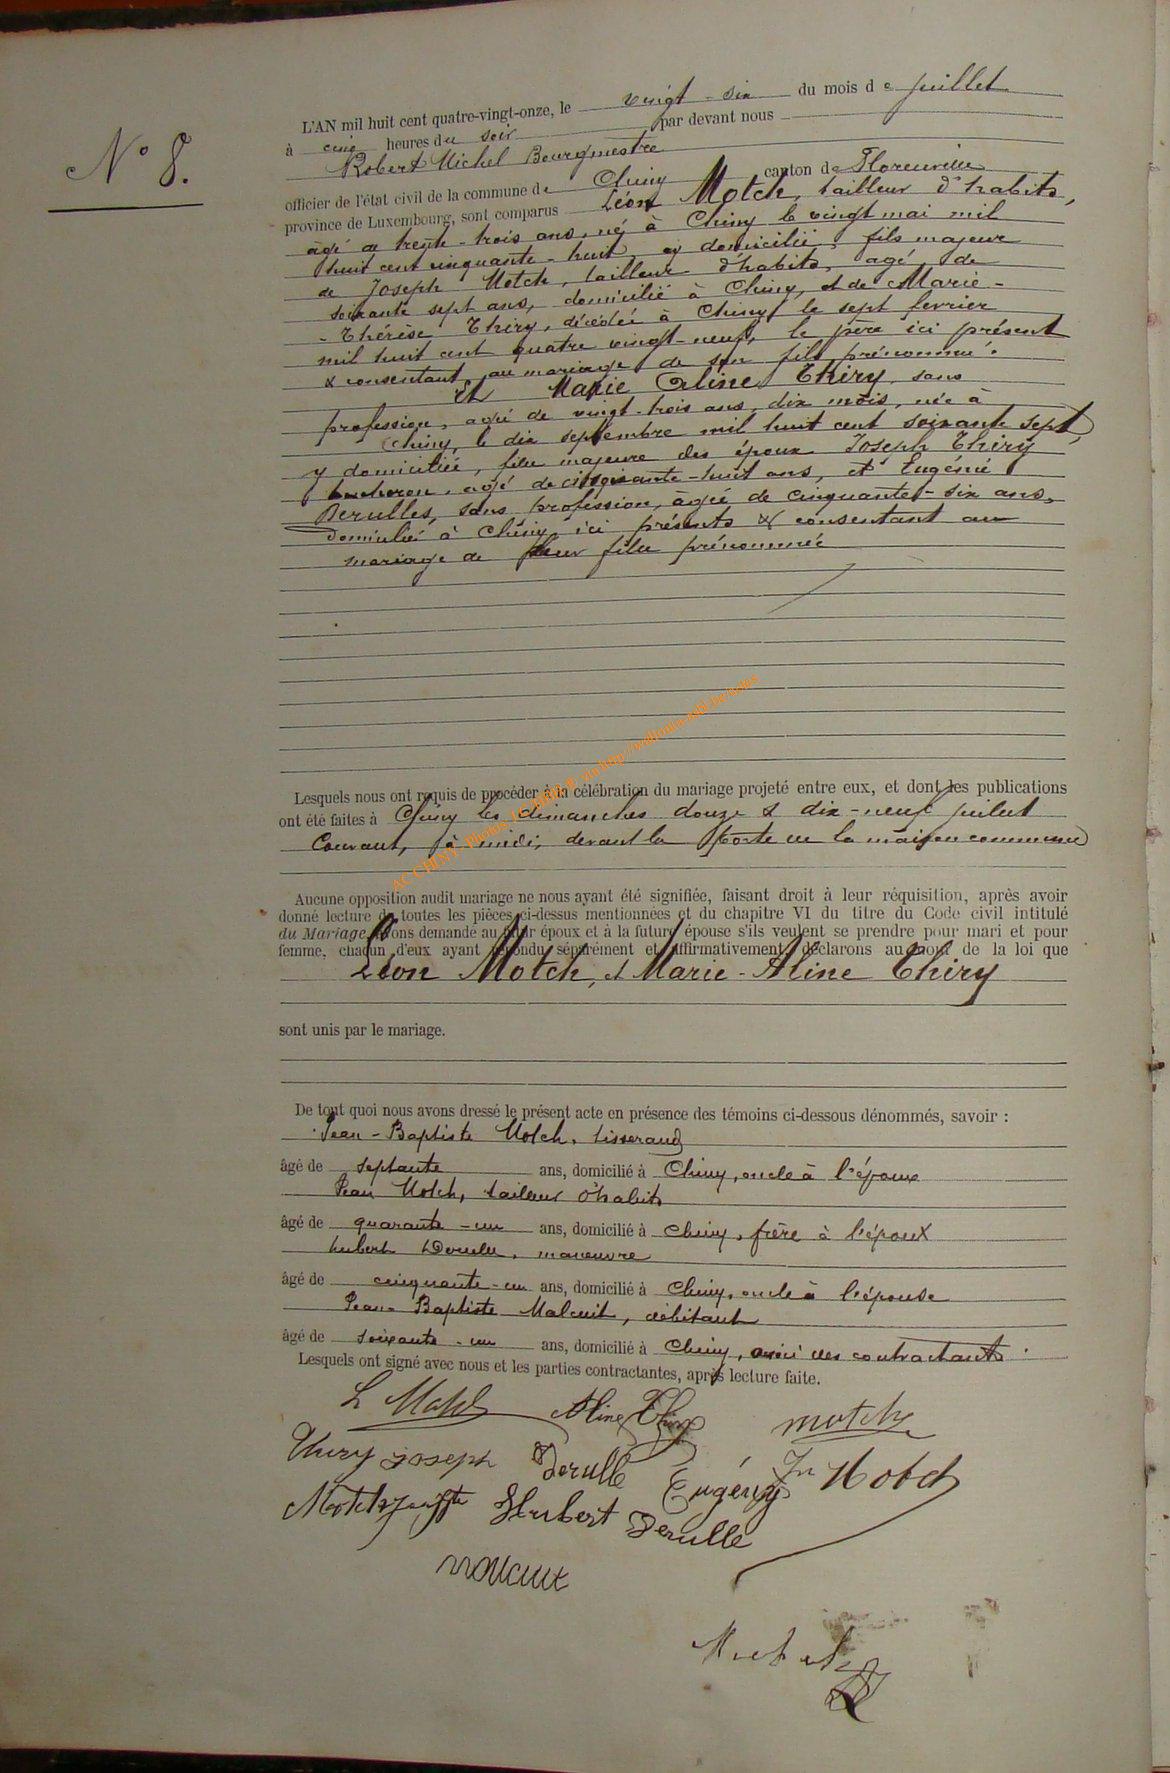 N° 8.
L'AN mil huit cent quatre-vingt-onze, le vingt-six du mois de juillet
à cinq heures du soir par devant nous
Robert Michel Bourgmestre
officier de l'état civil de la commune de Chiny canton de Florenville
province de Luxembourg, sont comparus Léon Motch, tailleur d'habits,
âgé de trente-trois ans, né à Chiny le vingt mai mil
huit cent cinquante-huit, y domicilié, fils majeur
de Joseph Motch, tailleur d'habits, agé de
soixante sept ans, domicilié à Chiny, et de Marie-
-Thérèse Thiry, décédée à Chiny le sept fevrier
mil huit cent quatre vingt-neuf, le père ici présent
& consentant au mariage de son fils prénommé.
Et Marie Aline Thiry, sans
profession, agée de vingt-trois ans, dix mois, née à
Chiny, le dix septembre mil huit cent soixante sept,
y domiciliée, fille majeure des époux Joseph Thiry
bucheron, agé de cinquante-huit ans, et Eugénie
Derulles, sans profession, âgée de cinquante-six ans,
domicilié à Chiny, ici présents & consentant au
mariage de leur fille prénommée
Lesquels nous ont requis de procéder à la célébration du mariage projeté entre eux, et dont les publications
ont été faites à Chiny les dimanches douze & dix-neuf juillet
Courant, à midi, devant la porte de la maison commune
Aucune opposition audit mariage ne nous ayant été signifiée, faisant droit à leur réquisition, après avoir
donné lecture de toutes les pièces ci-dessus mentionnées et du chapitre VI du titre du Code civil intitulé
du Mariage, avons demandé au futur époux et à la future épouse s'ils veulent se prendre pour mari et pour
femme, chacun d'eux ayant répondu séparément et affirmativement, déclarons au nom de la loi que
Léon Motch, et Marie-Aline Thiry
sont unis par le mariage.
De tout quoi nous avons dressé le présent acte en présence des témoins ci-dessous dénommés, savoir :
Jean-Baptiste Motch, tisserand
âgé de septante ans, domicilié à Chiny, oncle à l'époux
Jean Motch, tailleur d'habits
âgé de quarante-un ans, domicilié à Chiny, frère à l'époux
hubert Derulle, manœuvre
âgé de cinquante-un ans, domicilié à Chiny, oncle à l'épouse
Jean-Baptiste Malcuit, débitant
âgé de soixante-un ans, domicilié à Chiny, ami des contractants.
Lesquels ont signé avec nous et les parties contractantes, après lecture faite.
L Motch Aline Thiry motch
Thiry joseph Derulle Eugény Jn Motch
Motch Hubert Derulle